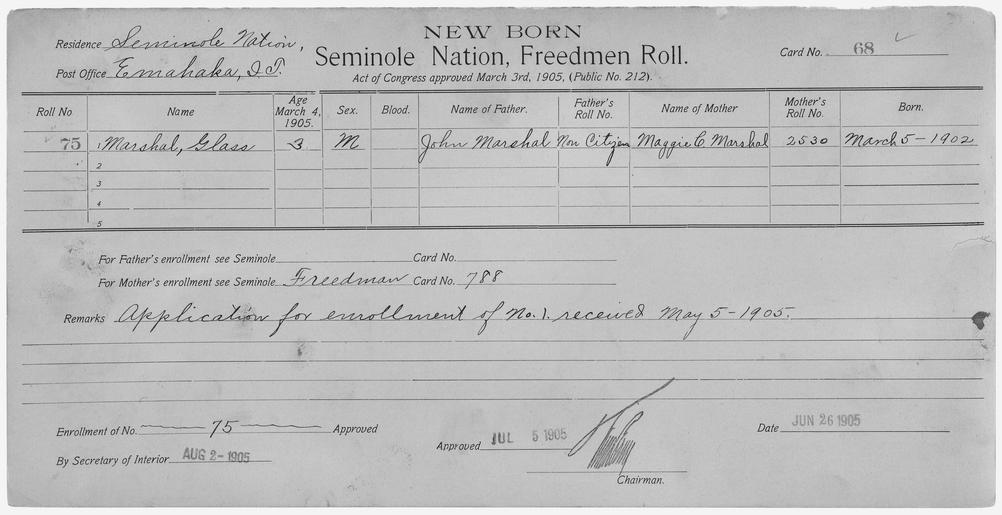 NEW BORN
Seminole Nation, Freedmen Roll.
Act of Congress approved March 3rd, 1905, (Public No. 212).
Residence Seminole Nation,
Post Office Emahaka, I.T.
Card No. 68
Roll No Name Age March 4, 1905. Sex. Blood. Name of Father. Father's Roll No. Name of Mother Mother's Roll No. Born.
75 1 Marshal, Glass 3 M John Marshal Non Citizen Maggie C Marshal 2530 March 5-1902
2
3
4
5
For Father's enrollment see Seminole Card No.
For Mother's enrollment see Seminole Freedman Card No. 788
Remarks Application for enrollment of No. 1. received May 5-1905.
Enrollment of No. 75 Approved
By Secretary of Interior AUG 2-1905
Approved JUL 5 1905
Chairman.
Date JUN 26 1905